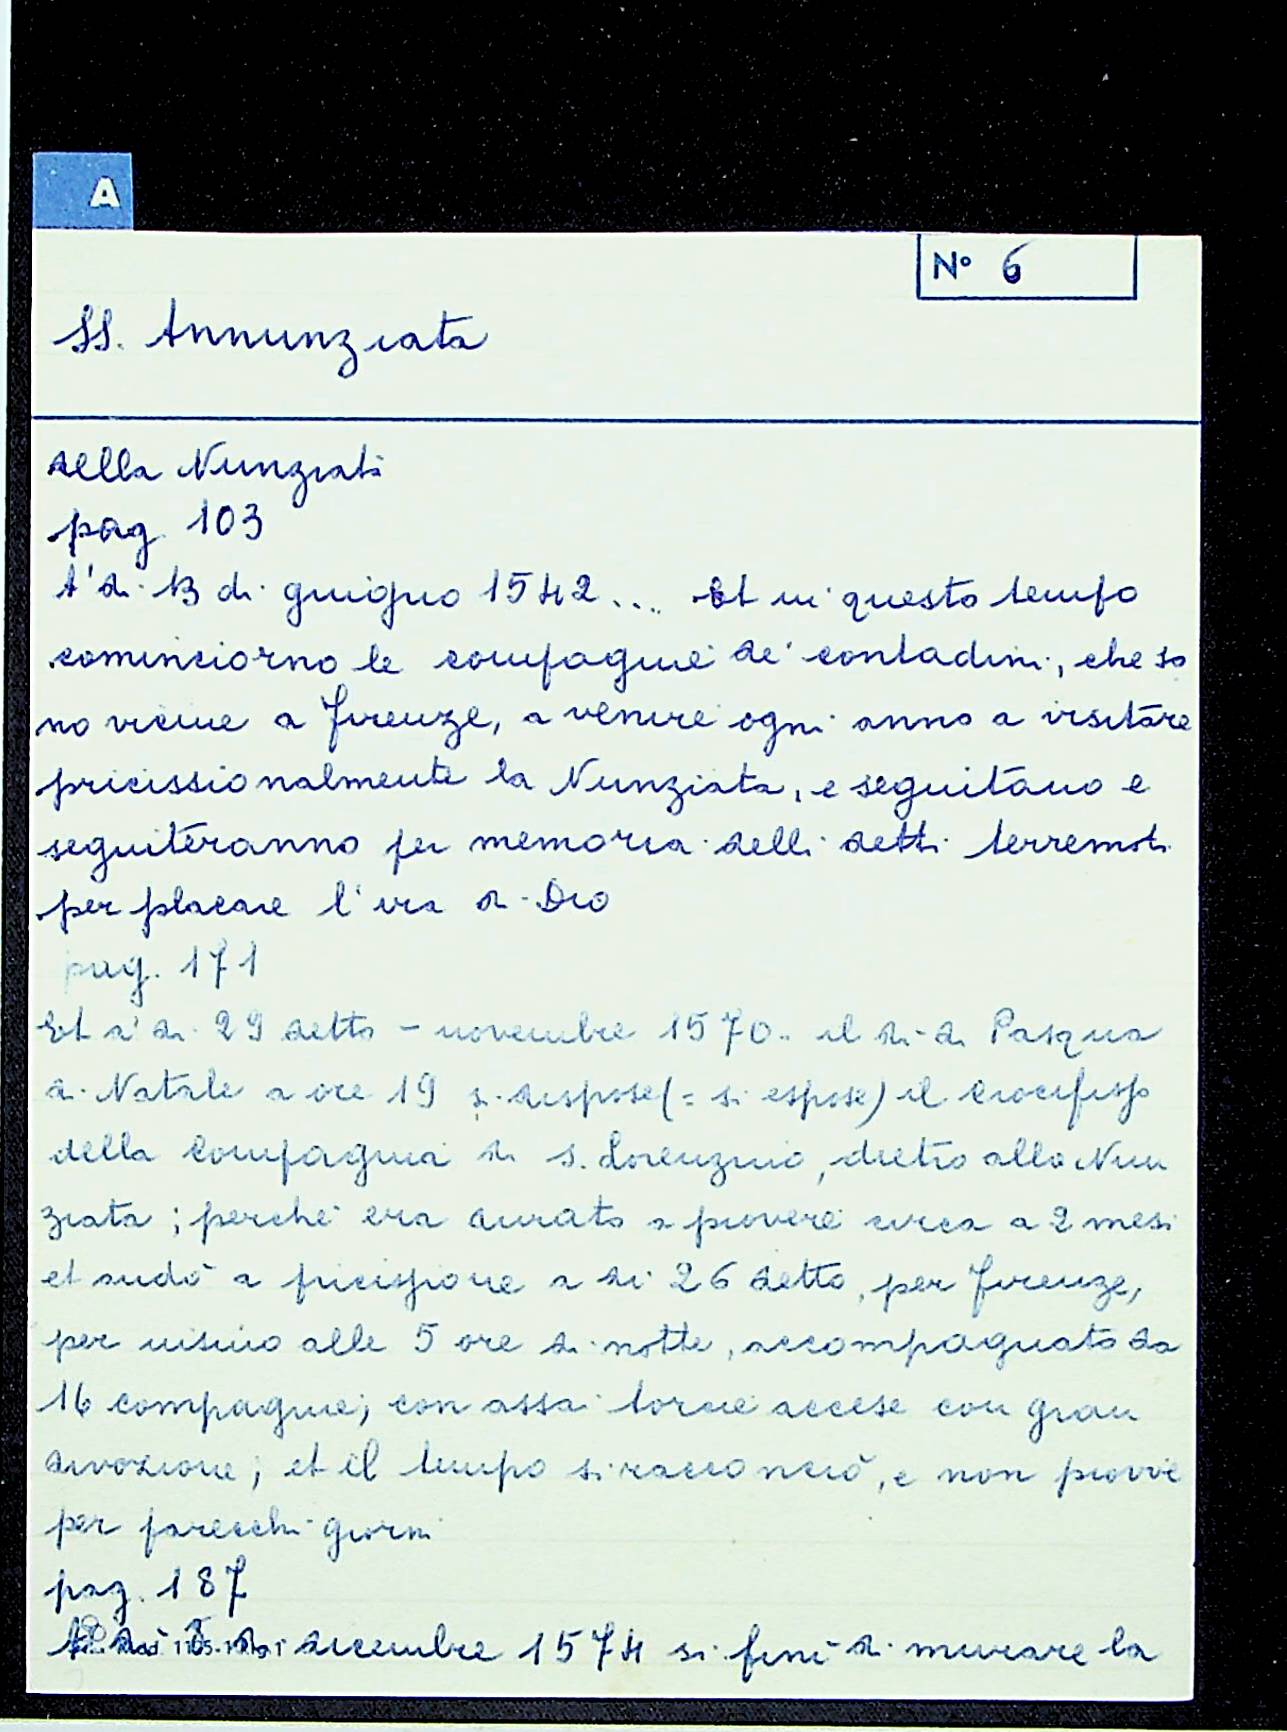 A
N° 6
SS. Annunziata
della Nunziata
pag. 103
A' di 13 di giuigno 1542 .... Et in questo tempo
cominciorno le compagnie de' contadini, che so
no vicine a Firenze, a venire ogni anno a visitare
pricissionalmente la Nunziata, e seguitano e
seguiteranno per memoria delli detti terremoti
per placare l'ira di Dio
pag. 171
Et a' di 29 detto - novembre 1570.. il dì di Pasqua
di Natale a ore 19 si dispose (= si espose) il Crocifisso
della Compagnia di S. Lorenzino, dietro alla Nun
ziata; perché era durato a piovere circa a 2 mesi
et andò a pricissione a dì 26 detto, per Firenze,
per insino alle 5 ore di notte, accompagnato da
16 compagnie; con assai torcie accese con gran
divozione; et il tempo si racconciò, e non piovve
per parecchi giorni
pag. 187
dicembre 1574 si finì di murare la